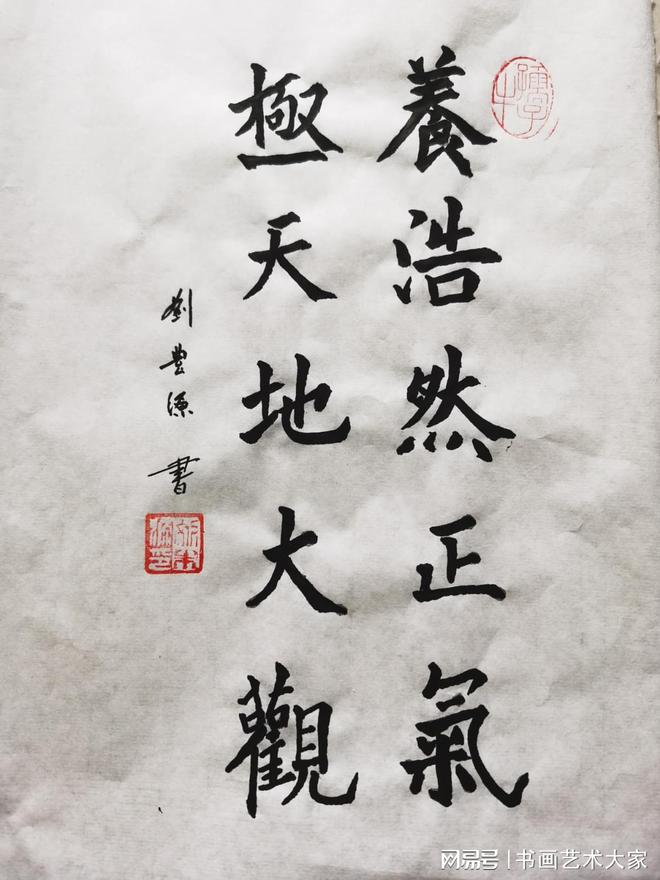 養浩然正氣
極天地大觀
劉豊源書
网易号 | 书画艺术大家